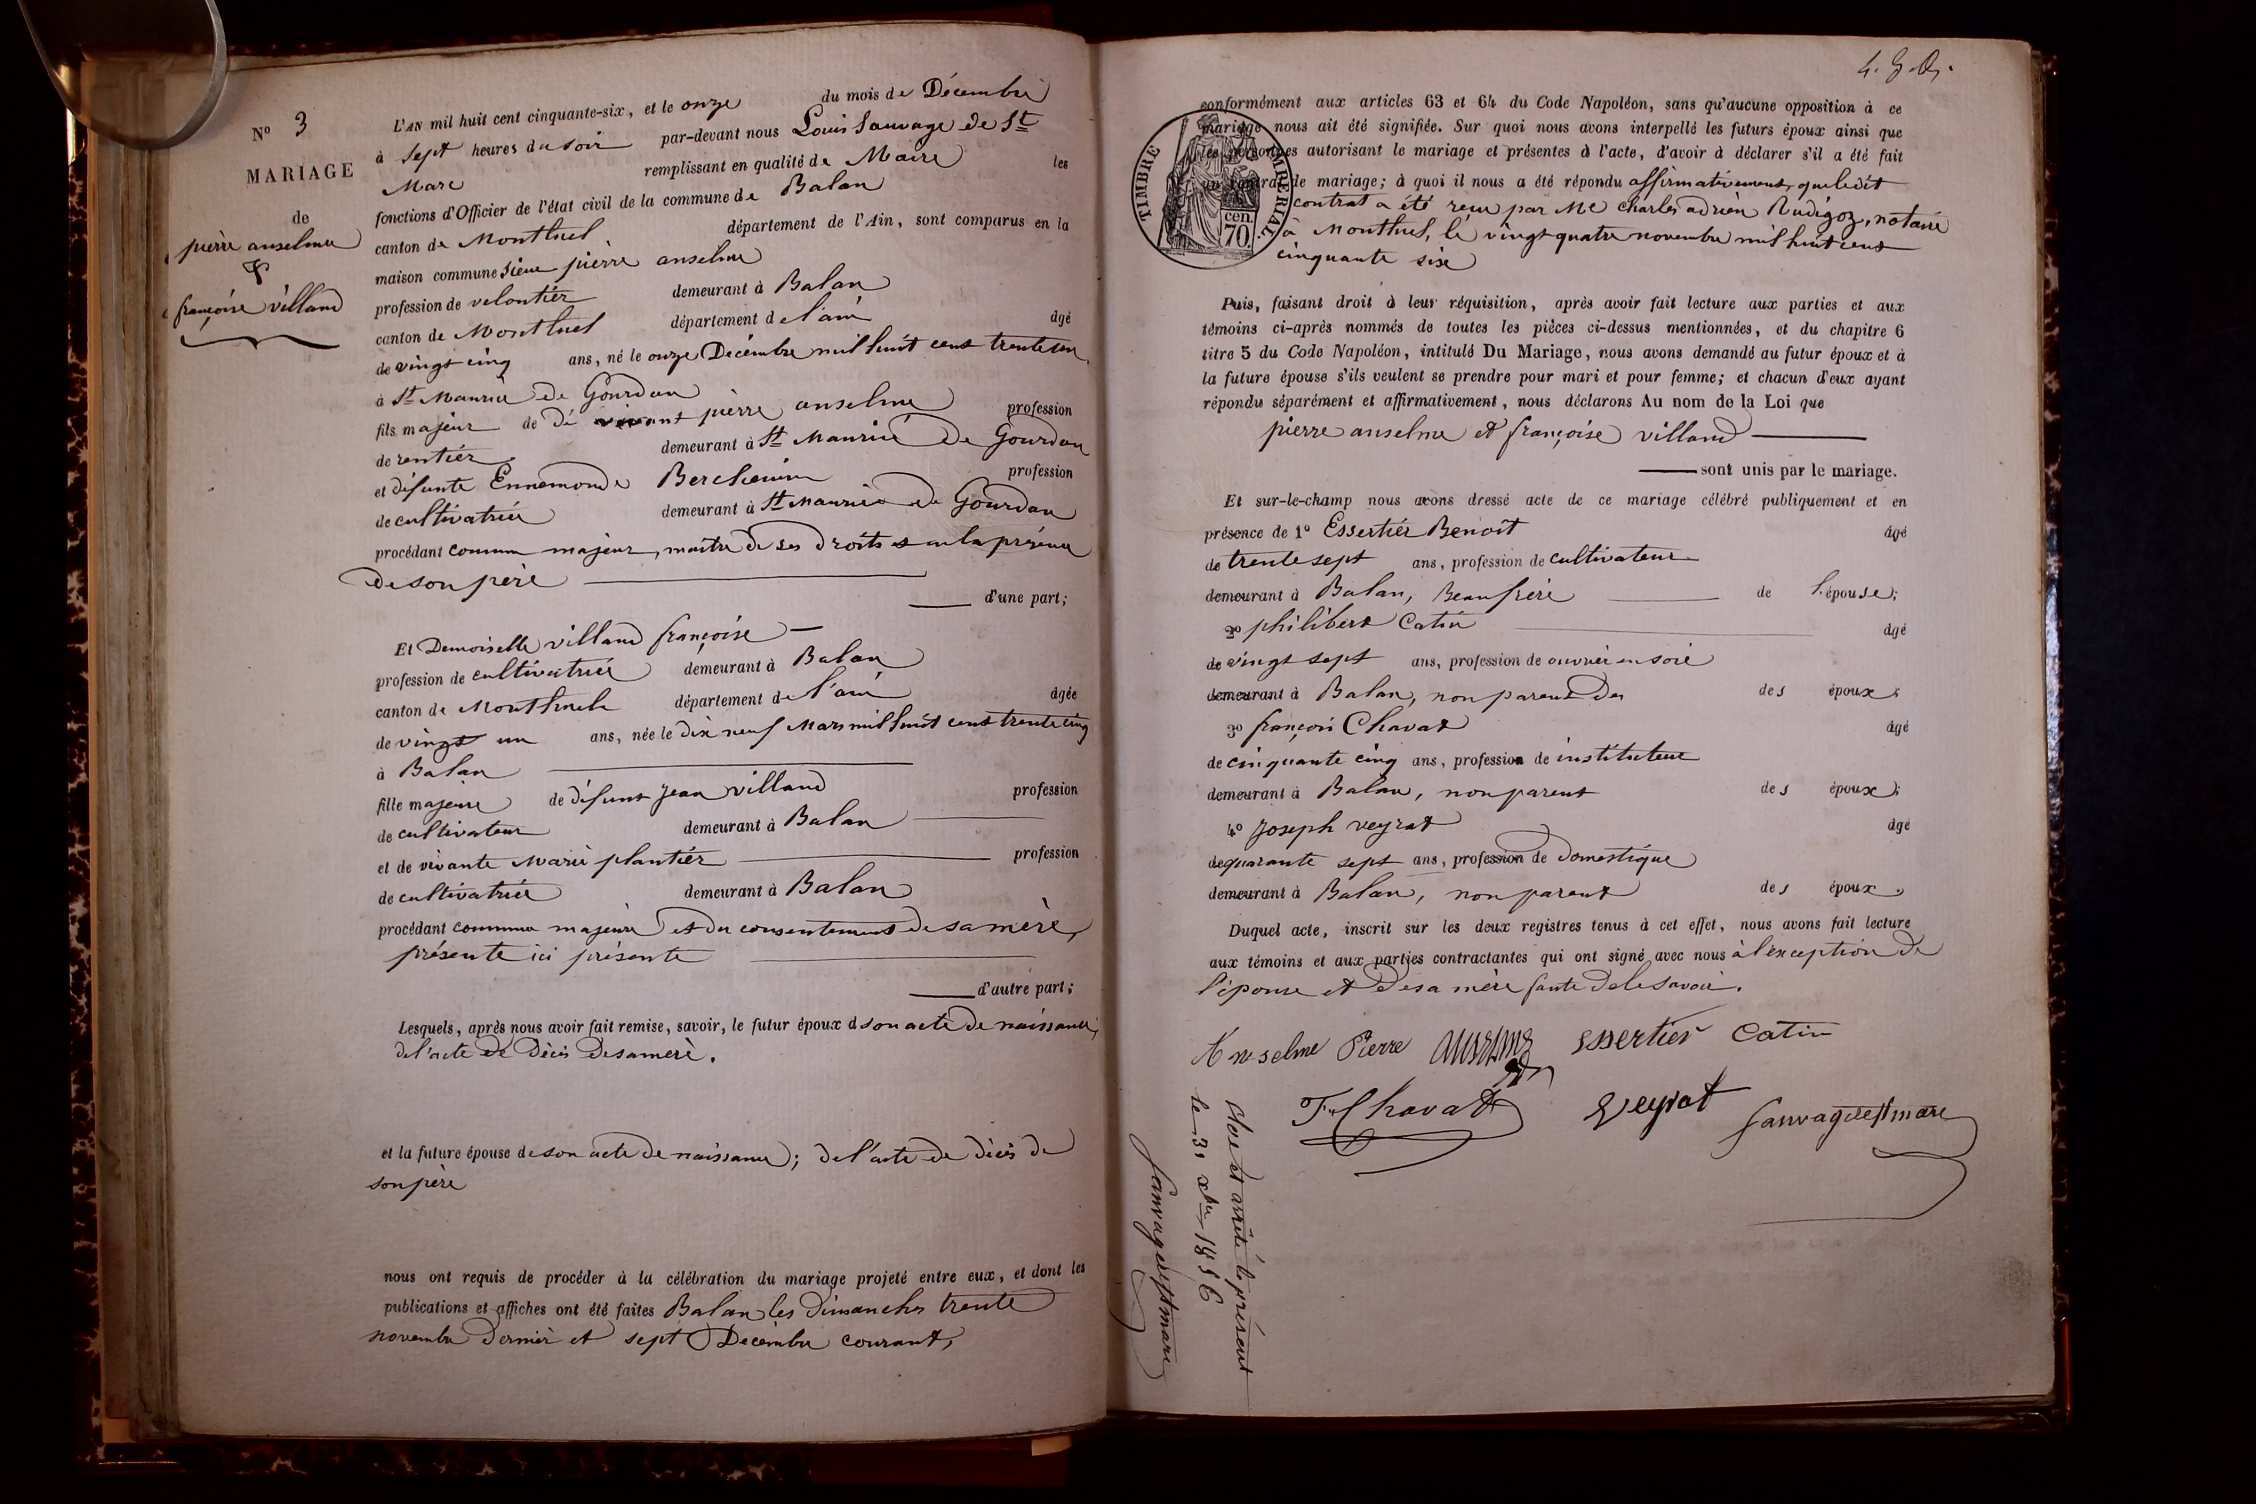 N° 3
MARIAGE
de
pierre anselme
&
françoise villand
L'AN mil huit cent cinquante-six, et le onze du mois de Décembre
à sept heures du soir par-devant nous Louis Sauvage de St
Marc remplissant en qualité de Maire les
fonctions d'Officier de l'état civil de la commune de Balan
canton de Montluel département de l'Ain, sont comparus en la
maison commune sieur pierre anselme
profession de veloutier demeurant à Balan
canton de Montluel département de l'ain âgé
de vingt cinq ans, né le onze Décembre mil huit cent trente un
à St Maurice de Gourdan
fils majeur de vivant pierre anselme profession
de rentier demeurant à St Maurice de Gourdan
et défunte Ennemonde Berchenin profession
de cultivatrice demeurant à St Maurice de Gourdan
procédant comme majeur, maître de ses droits et en la présence
de son père
d'une part;
Et Demoiselle villand françoise
profession de cultivatrice demeurant à Balan
canton de Montluel département de l'ain âgée
de vingt un ans, née le dix neuf Mars mil huit cent trente cinq
à Balan
fille majeure de défunt Jean villand profession
de cultivateur demeurant à Balan
et de vivante Marie plantier profession
de cultivatrice demeurant à Balan
procédant comme majeure et du consentement de sa mère,
présente ici présente
d'autre part;
Lesquels, après nous avoir fait remise, savoir, le futur époux d son acte de naissance,
de l'acte de décès de sa mère.
et la future épouse de son acte de naissance; de l'acte de décès de
son père
nous ont requis de procéder à la célébration du mariage projeté entre eux, et dont les
publications et affiches ont été faites Balan les dimanches trente
novembre dernier et sept Décembre courant,
conformément aux articles 63 et 64 du Code Napoléon, sans qu'aucune opposition à ce
mariage nous ait été signifiée. Sur quoi nous avons interpellé les futurs époux ainsi que
les personnes autorisant le mariage et présentes à l'acte, d'avoir à déclarer s'il a été fait
un contrat de mariage; à quoi il nous a été répondu affirmativement, que ledit
contrat a été reçu par Me Charles adrien Rudigoz, notaire
à Montluel, le vingt quatre novembre mil huit cent
cinquante six
TIMBRE IMPÉRIAL
cen.
70
Puis, faisant droit à leur réquisition, après avoir fait lecture aux parties et aux
témoins ci-après nommés de toutes les pièces ci-dessus mentionnées, et du chapitre 6
titre 5 du Code Napoléon, intitulé Du Mariage, nous avons demandé au futur époux et à
la future épouse s'ils veulent se prendre pour mari et pour femme; et chacun d'eux ayant
répondu séparément et affirmativement, nous déclarons Au nom de la Loi que
pierre anselme et françoise villand
sont unis par le mariage.
Et sur-le-champ nous avons dressé acte de ce mariage célébré publiquement et en
présence de 1° Essertier Benoît âgé
de trente sept ans, profession de cultivateur
demeurant à Balan, Beau frère de l'épouse;
2° philibert Catin âgé
de vingt sept ans, profession de ouvrier en soie
demeurant à Balan, non parent des des époux;
3° françois Chavat âgé
de cinquante cinq ans, profession de instituteur
demeurant à Balan, non parent des époux;
4° Joseph veyrat âgé
de quarante sept ans, profession de domestique
demeurant à Balan, non parent des époux.
Duquel acte, inscrit sur les deux registres tenus à cet effet, nous avons fait lecture
aux témoins et aux parties contractantes qui ont signé avec nous à l'exception de
l'épouse et de sa mère faute de le savoir.
Anselme Pierre anselme essertier Catin
F. Chavat Veyrat Sauvage de St marc
Clos et arrêté le présent
le 31 xbre 1856
Sauvage de St marc